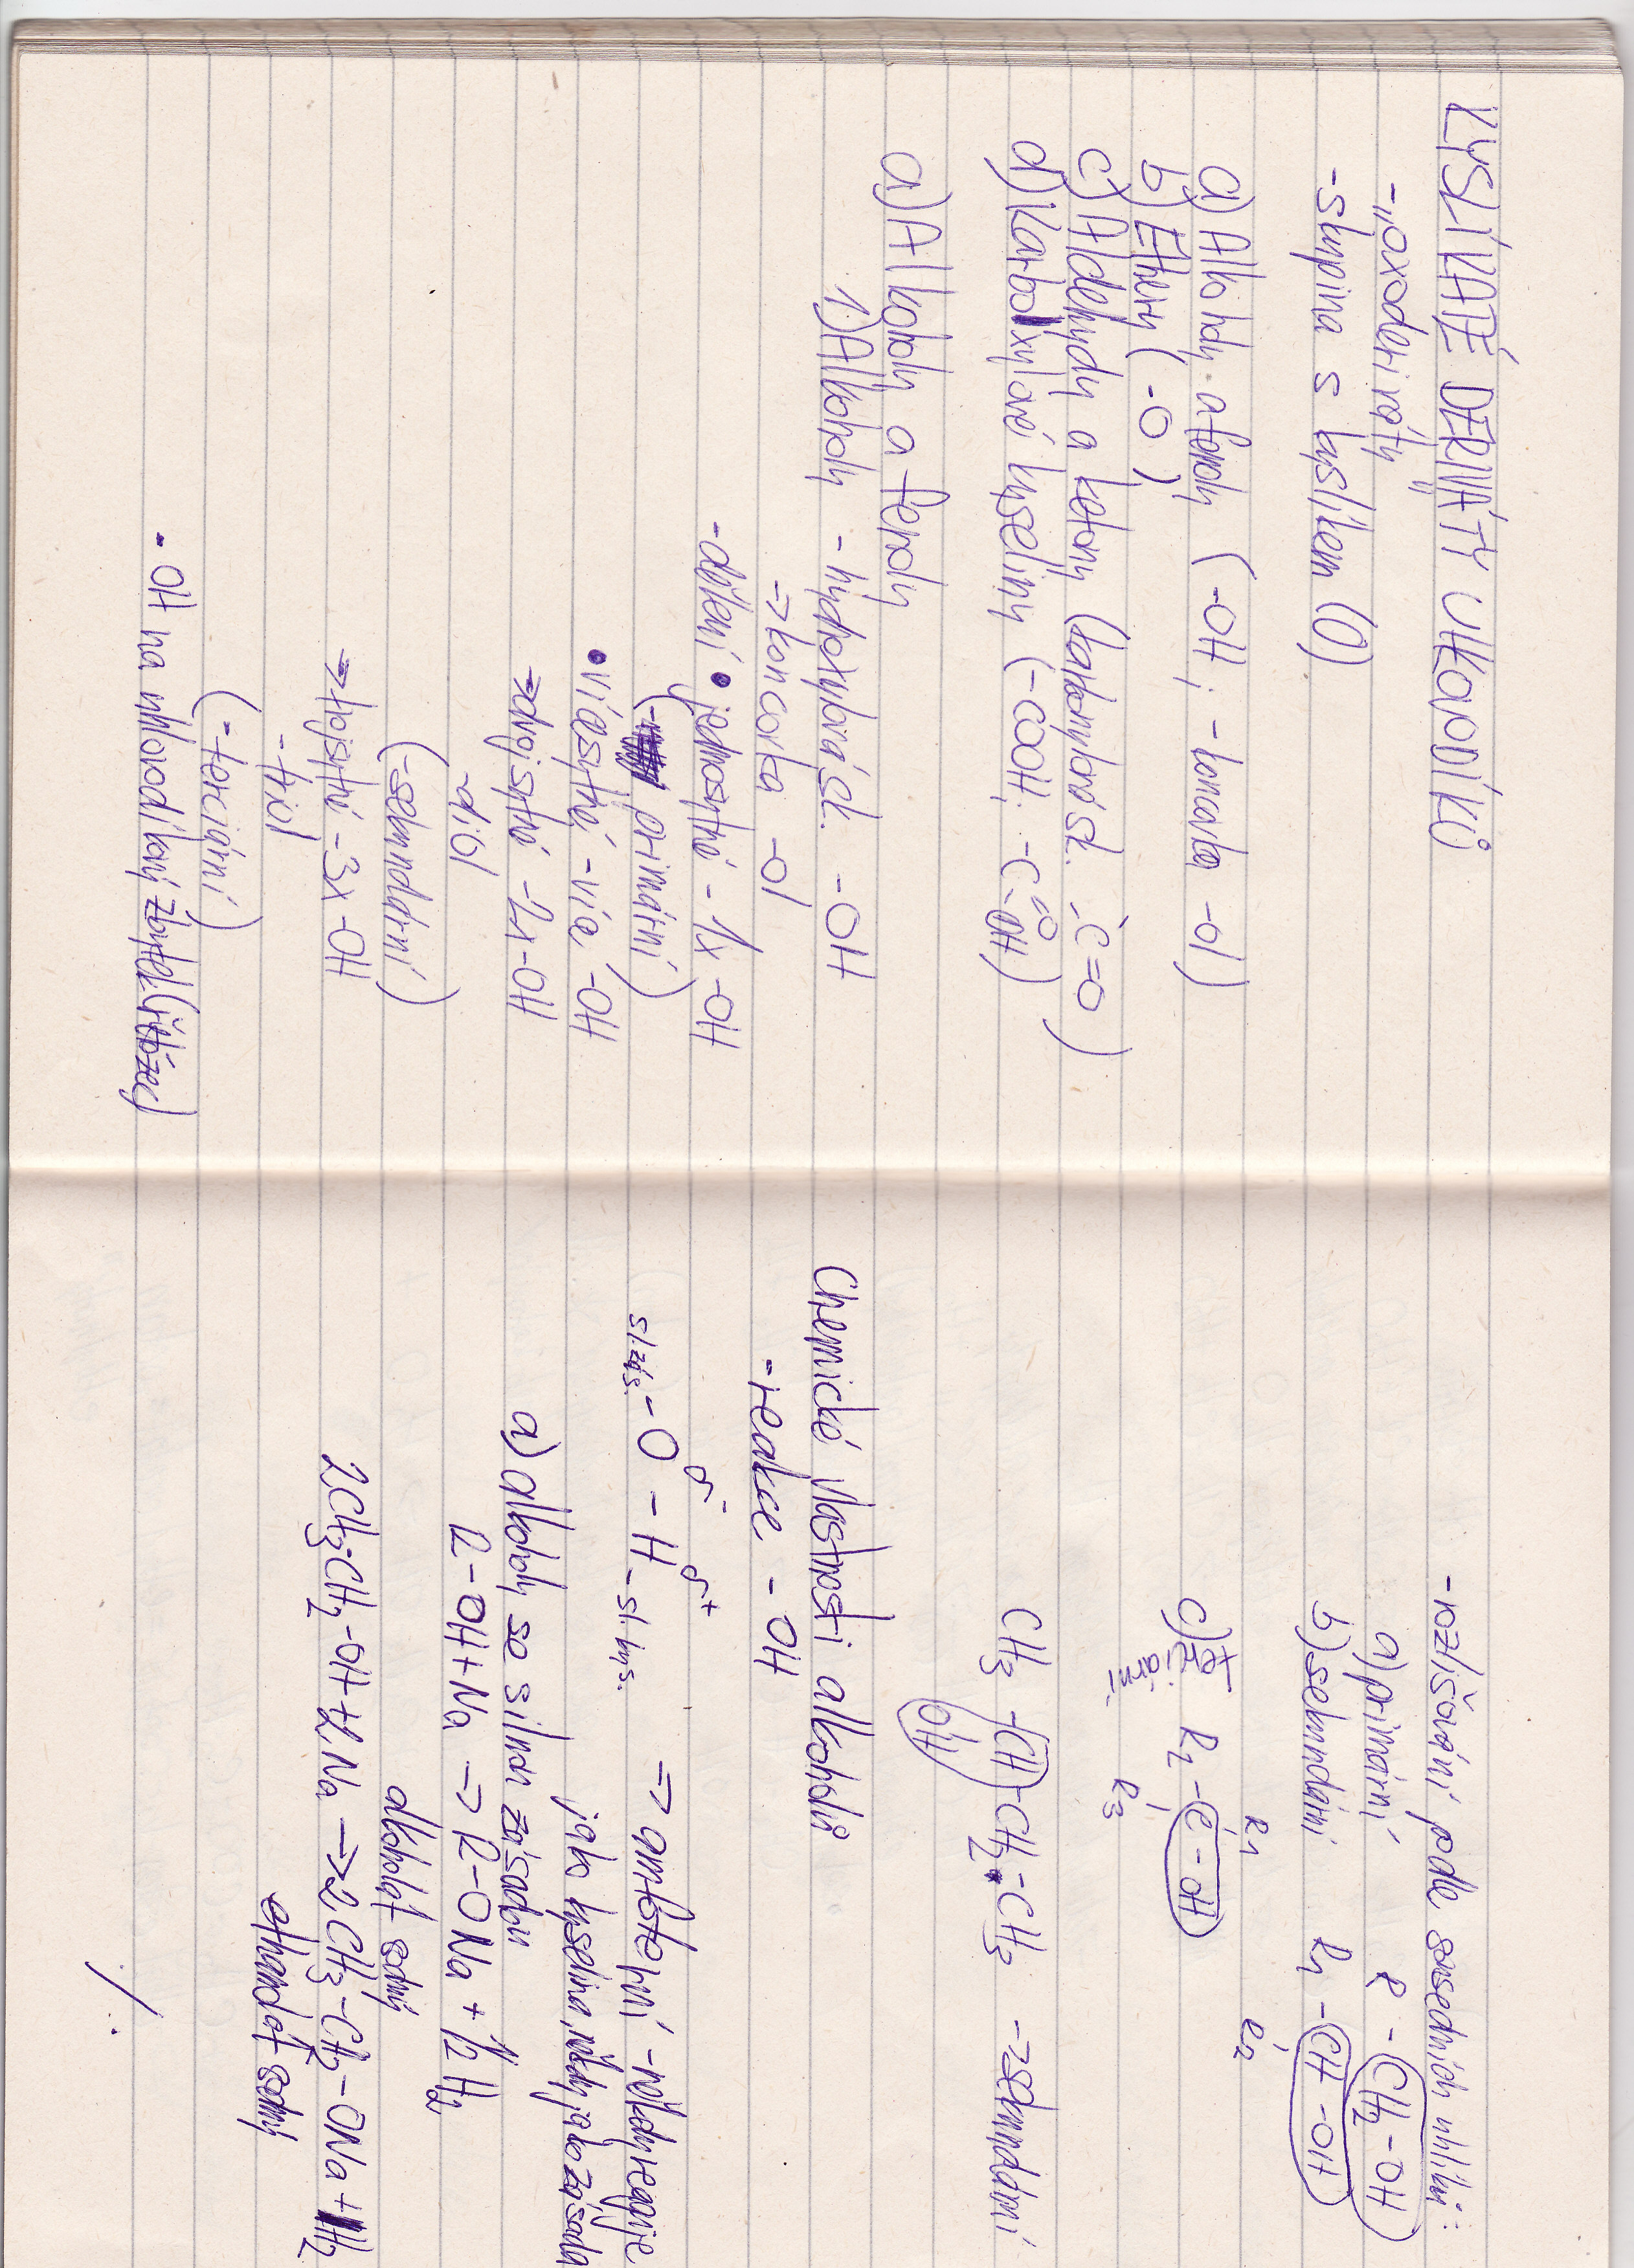 KYSLÍKATÉ DERIVÁTY UHLOVODÍKŮ
- „oxoderiváty"
- skupina s kyslíkem (O)
a) Alkoholy a fenoly (-OH; -koncovka -ol)
b) Ethery (-O-)
c) Aldehydy a ketony (karbonylová sk. -C=O)
d) Karboxylové kyseliny (-COOH; -C=O-OH)
a) Alkoholy a fenoly
1.) Alkoholy - hydroxylová sk. -OH
=> koncovka -ol
- dělení • jednosytné - 1x -OH
(- primární)
• vícesytné - více -OH
-> dvojsytné - 2x -OH
-diol
(-sekundární)
-> trojsytné - 3x -OH
-triol
(-terciární)
- OH na uhlovodíkový zbytek (řetězec)
- rozlišování podle sousedních uhlíků:
a) primární R - CH2 - OH
b) sekundární R1 - CH - OH
R2
c) terciární
R1
R2 - C - OH
R3
CH3 - CH - CH2 - CH3 -> sekundární
OH
Chemické vlastnosti alkoholů
- reakce - OH
δ- δ+
sl. zás. - O - H - sl. kys. => amfoterní - někdy reaguje
jako kyselina, někdy jako zásada
a) alkoholy se silnou zásadou
R - OH + Na -> R - ONa + 1/2 H2
alkoholát sodný
2CH3-CH2-OH + 2Na -> 2CH3-CH2-ONa + H2
ethanolát sodný
/.